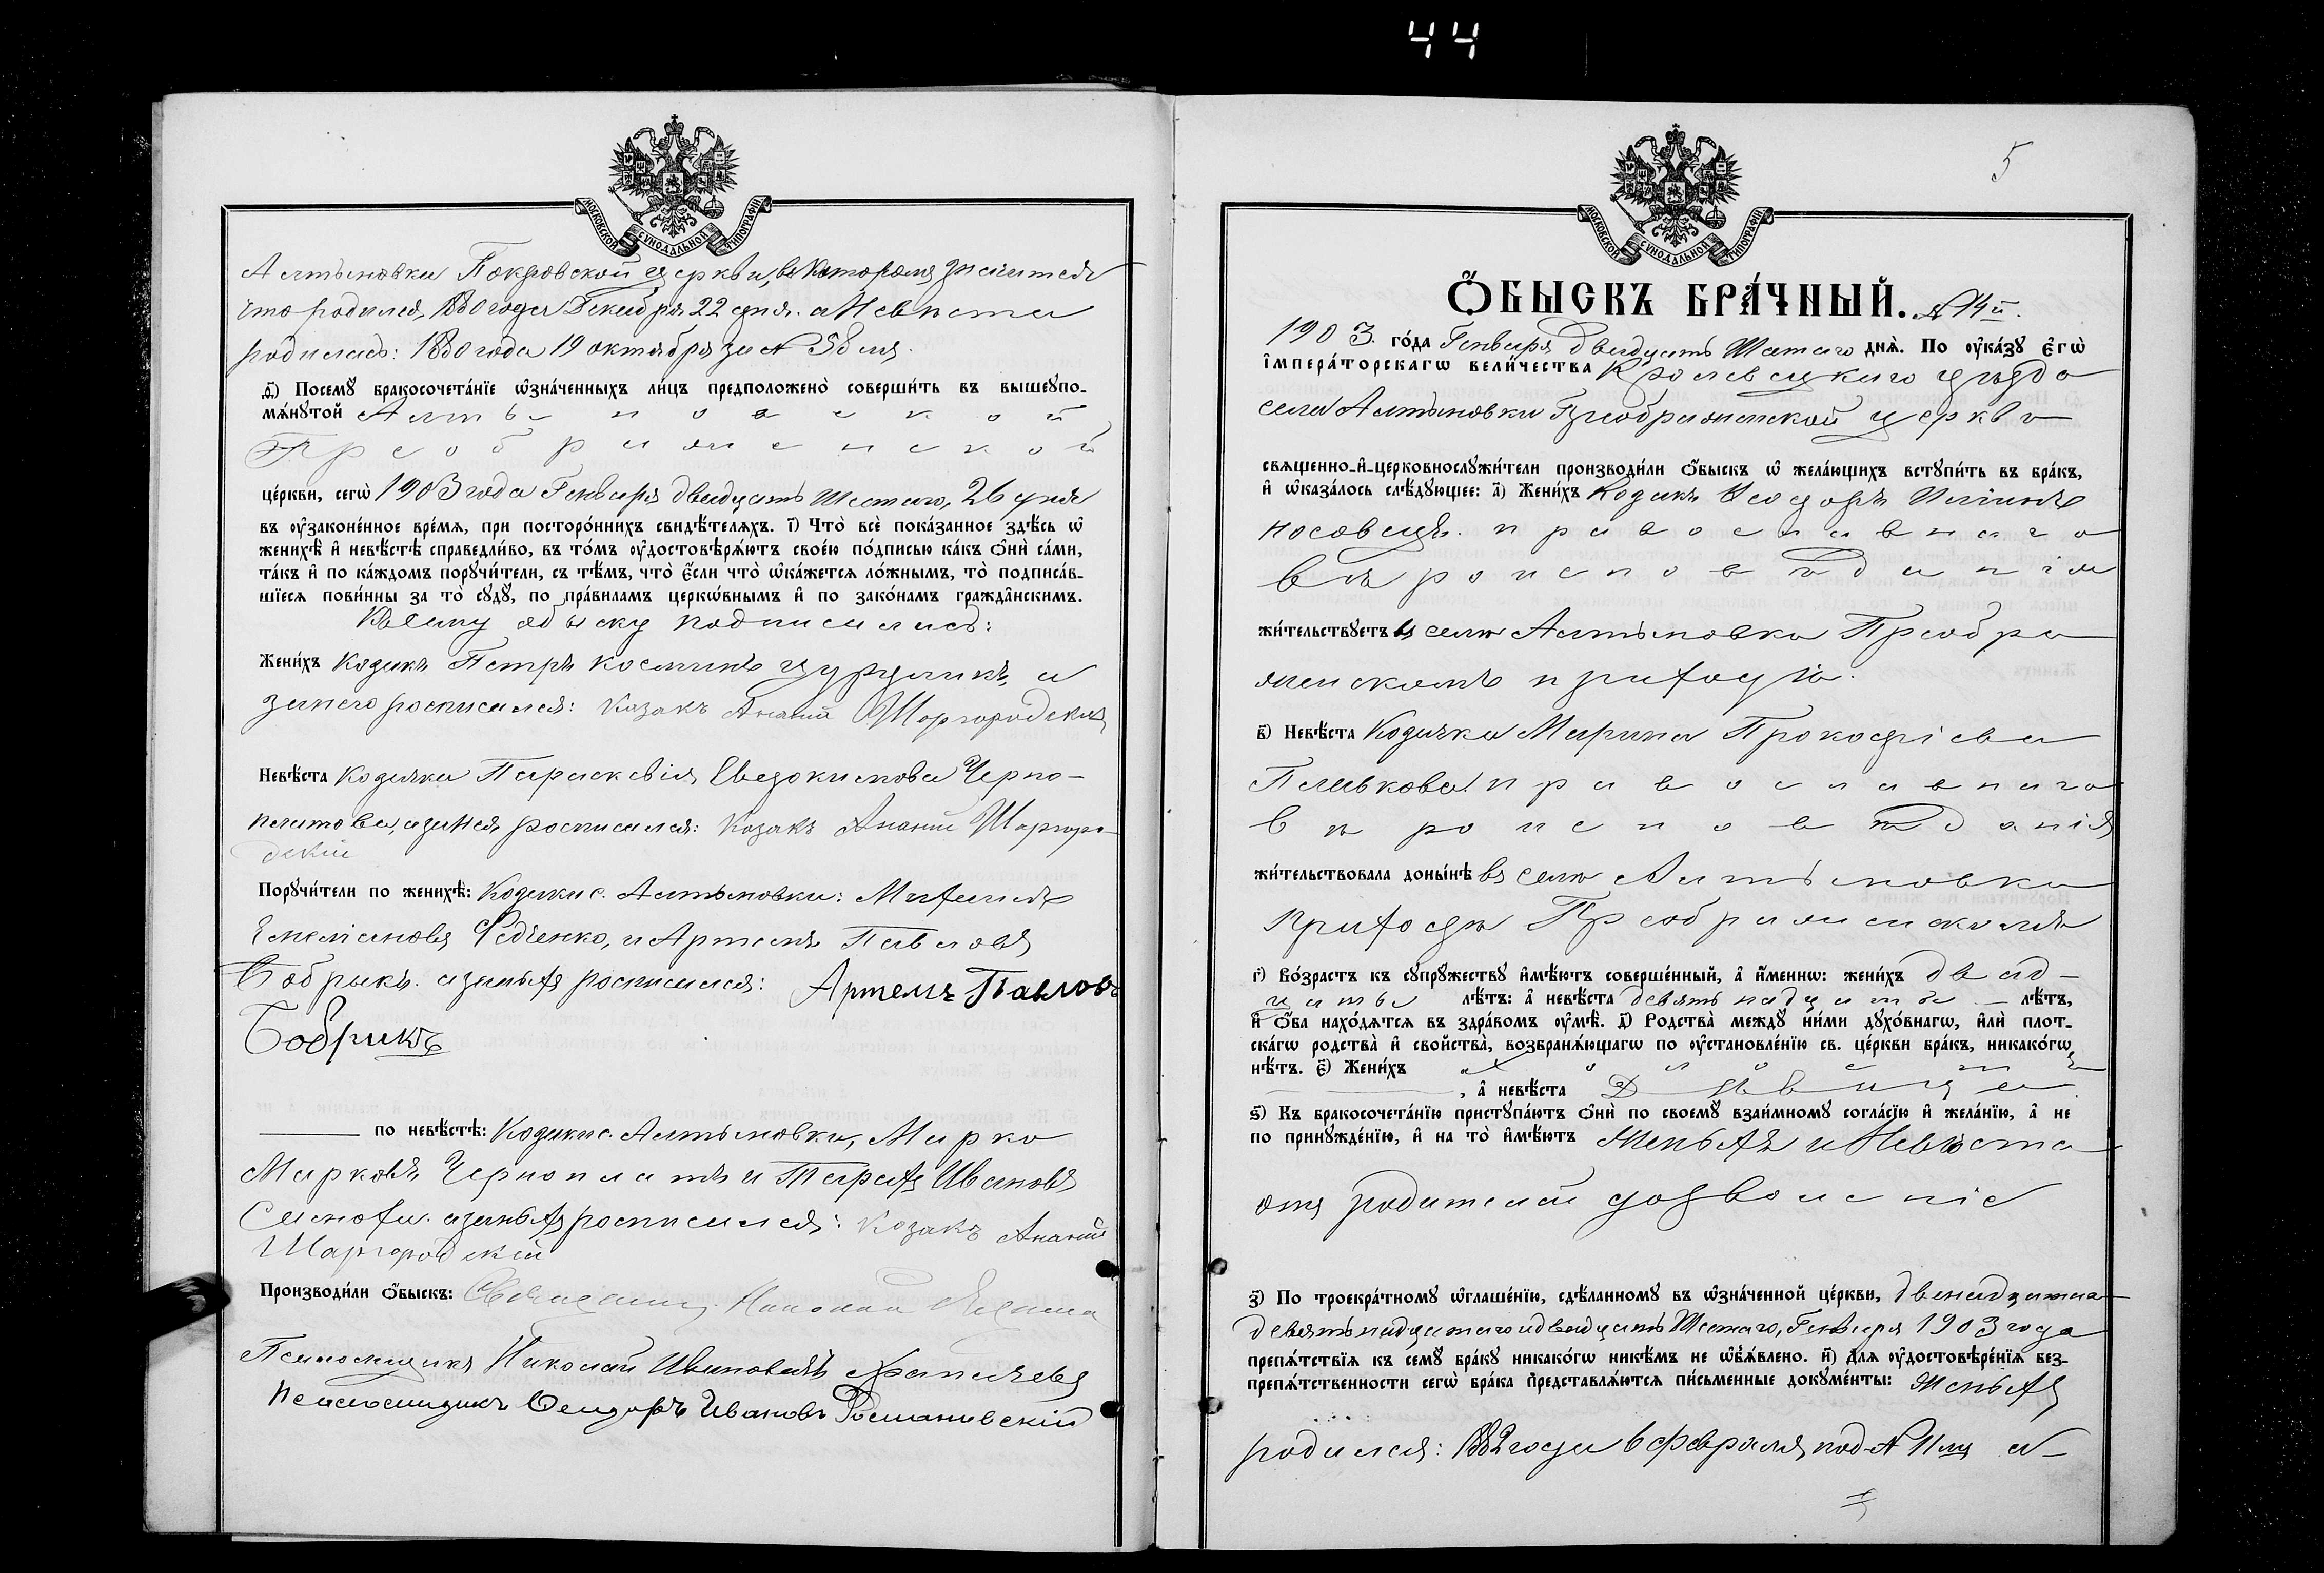 44
МОСКОВСКОЙ СУНОДАЛЬНОЙ ТИПОГРАФІИ
Алтыновки Покровской церкви, въ которомъ значится
что родился, 1880 года Декабря 22 дня. а Невѣста
родилась: 1880 года 19 октября за №
д҃) Посемꙋ̀ бракосочета́нїе ѡ҆зна́ченныхъ ли́цъ предположено̀ соверши́ть въ вышеꙋпо-
мѧ́нꙋтой Алтыновской
Преображенской
це́ркви, сегѡ̀ 1903 года Генваря двадцать шестаго, 26 дня
въ ᲂу҆законе́нное вре́мѧ, при посторо́ннихъ свидѣ́телѧхъ. і҃) Что̀ всѐ пока́занное здѣ́сь ѡ҆
женихѣ̀ и҆ невѣ́стѣ справедли́во, въ то́мъ ᲂу҆достовѣрѧ́ютъ свое́ю по́дписью ка́къ ѻ҆нѝ са́ми,
та́къ и҆ по ка́ждомъ порꙋчи́тели, съ тѣ́мъ, что̀ є҆́сли что̀ ѡ҆ка́жетсѧ ло́жнымъ, то̀ подписа́в-
шїесѧ пови́нны за то̀ сꙋдꙋ̀, по пра́виламъ церкѡ́внымъ и҆ по зако́намъ гражда̂нскимъ.
Къ сему обыску подписались:
Жени́хъ Козакъ Петръ Косминъ Цурупикъ, а
за него росписался: Козакъ Ананій Шаргородскій
Невѣ́ста Козачка Параскевія Евдокимова Черно-
платова, а за нея росписался: Козакъ Ананій Шаргоро-
дскій
Порꙋчи́тели по женихѣ̀: Козаки с. Алтыновки: Михаилъ
Емеліановъ Федченко, и Артемъ Павловъ
Бобрыкъ. а за нихъ росписался: Артемъ Павловъ
Бобрикъ
по невѣ́стѣ: Козаки с. Алтыновки, Марко
Марковъ Черноплатъ и Тарахъ Ивановъ
а за нихъ росписался: Козакъ Ананій
Шаргородскій
Производи́ли ѻ҆́быскъ: Священникъ
Псаломщикъ Николай Ивановичъ
Псаломщикъ Феодоръ Ивановъ
5
МОСКОВСКОЙ СУНОДАЛЬНОЙ ТИПОГРАФІИ
Ѻ҆́БЫСКЪ БРА́ЧНЫЙ. № 14й.
1903. го́да Генваря двадцать шестаго днѧ̀. По ᲂу҆ка́зꙋ є҆гѡ̀
і҆мпера́торскагѡ вели́чества Кролевецкаго уѣзда
села Алтыновки Преображенской церкви
свѧще́нно-и҆-церковнослꙋжи́тели производи́ли ѻ҆́быскъ ѡ҆ жела́ющихъ встꙋпи́ть въ бра́къ,
и҆ ѡ҆каза́лось слѣ́дꙋющее: а҃) Жени́хъ Козакъ Феодоръ
Носовецъ. православнаго
вѣроисповѣданія
жи́тельствꙋетъ въ селѣ Алтыновкѣ Преобра
женскомъ приходѣ.
в҃) Невѣ́ста Козачка Марина Прокофіева
Палькова православнаго
вѣроисповѣданія
жи́тельствовала доны́нѣ въ селѣ Алтыновкѣ
приходѣ Преображенскомъ
г҃) Во́зрастъ къ сꙋпрꙋ́жествꙋ и҆мѣ́ютъ соверше́нный, а҆ и҆́менно: жени́хъ двад-
цать лѣ́тъ: а҆ невѣ́ста девятнадцать — лѣ́тъ,
и҆ ѻ҆́ба нахо́дѧтсѧ въ здра́вомъ ᲂу҆мѣ̀. д҃) Родства̀ междꙋ̀ ни́ми дꙋхо́внагѡ, и҆лѝ плот-
ска́гѡ родства̀ и҆ сво́йства, возбранѧ́ющагѡ по ᲂу҆становле́нїю св. це́ркви бра́къ, никако́гѡ
нѣ́тъ. є҃) Жени́хъ холостъ
, а҆ невѣ́ста Дѣвица
ѕ҃) Къ бракосочета́нїю пристꙋпа́ютъ ѻ҆нѝ по своемꙋ̀ взаи́мномꙋ согла́сїю и҆ жела́нїю, а҆ не
по принꙋжде́нїю, и҆ на то̀ и҆мѣ́ютъ Женихъ и Невѣста
отъ родителей дозволеніе
з҃) По троекра́тномꙋ ѡ҆глаше́нїю, сдѣ́ланномꙋ въ ѡ҆зна́ченной це́ркви, двенадцатаго
девятнадцатаго и двадцать шестаго, Генваря 1903 года
препѧ́тствїѧ къ семꙋ̀ бра́кꙋ никако́гѡ никѣ́мъ не ѡ҆б̾ѧ́влено. и҃) Длѧ ᲂу҆достовѣре́нїѧ без-
препѧ́тственности сегѡ̀ бра́ка представлѧ́ютсѧ пи́сьменные докꙋме́нты: женихъ
родился: 1882 года 6 февраля, под № 11мъ а